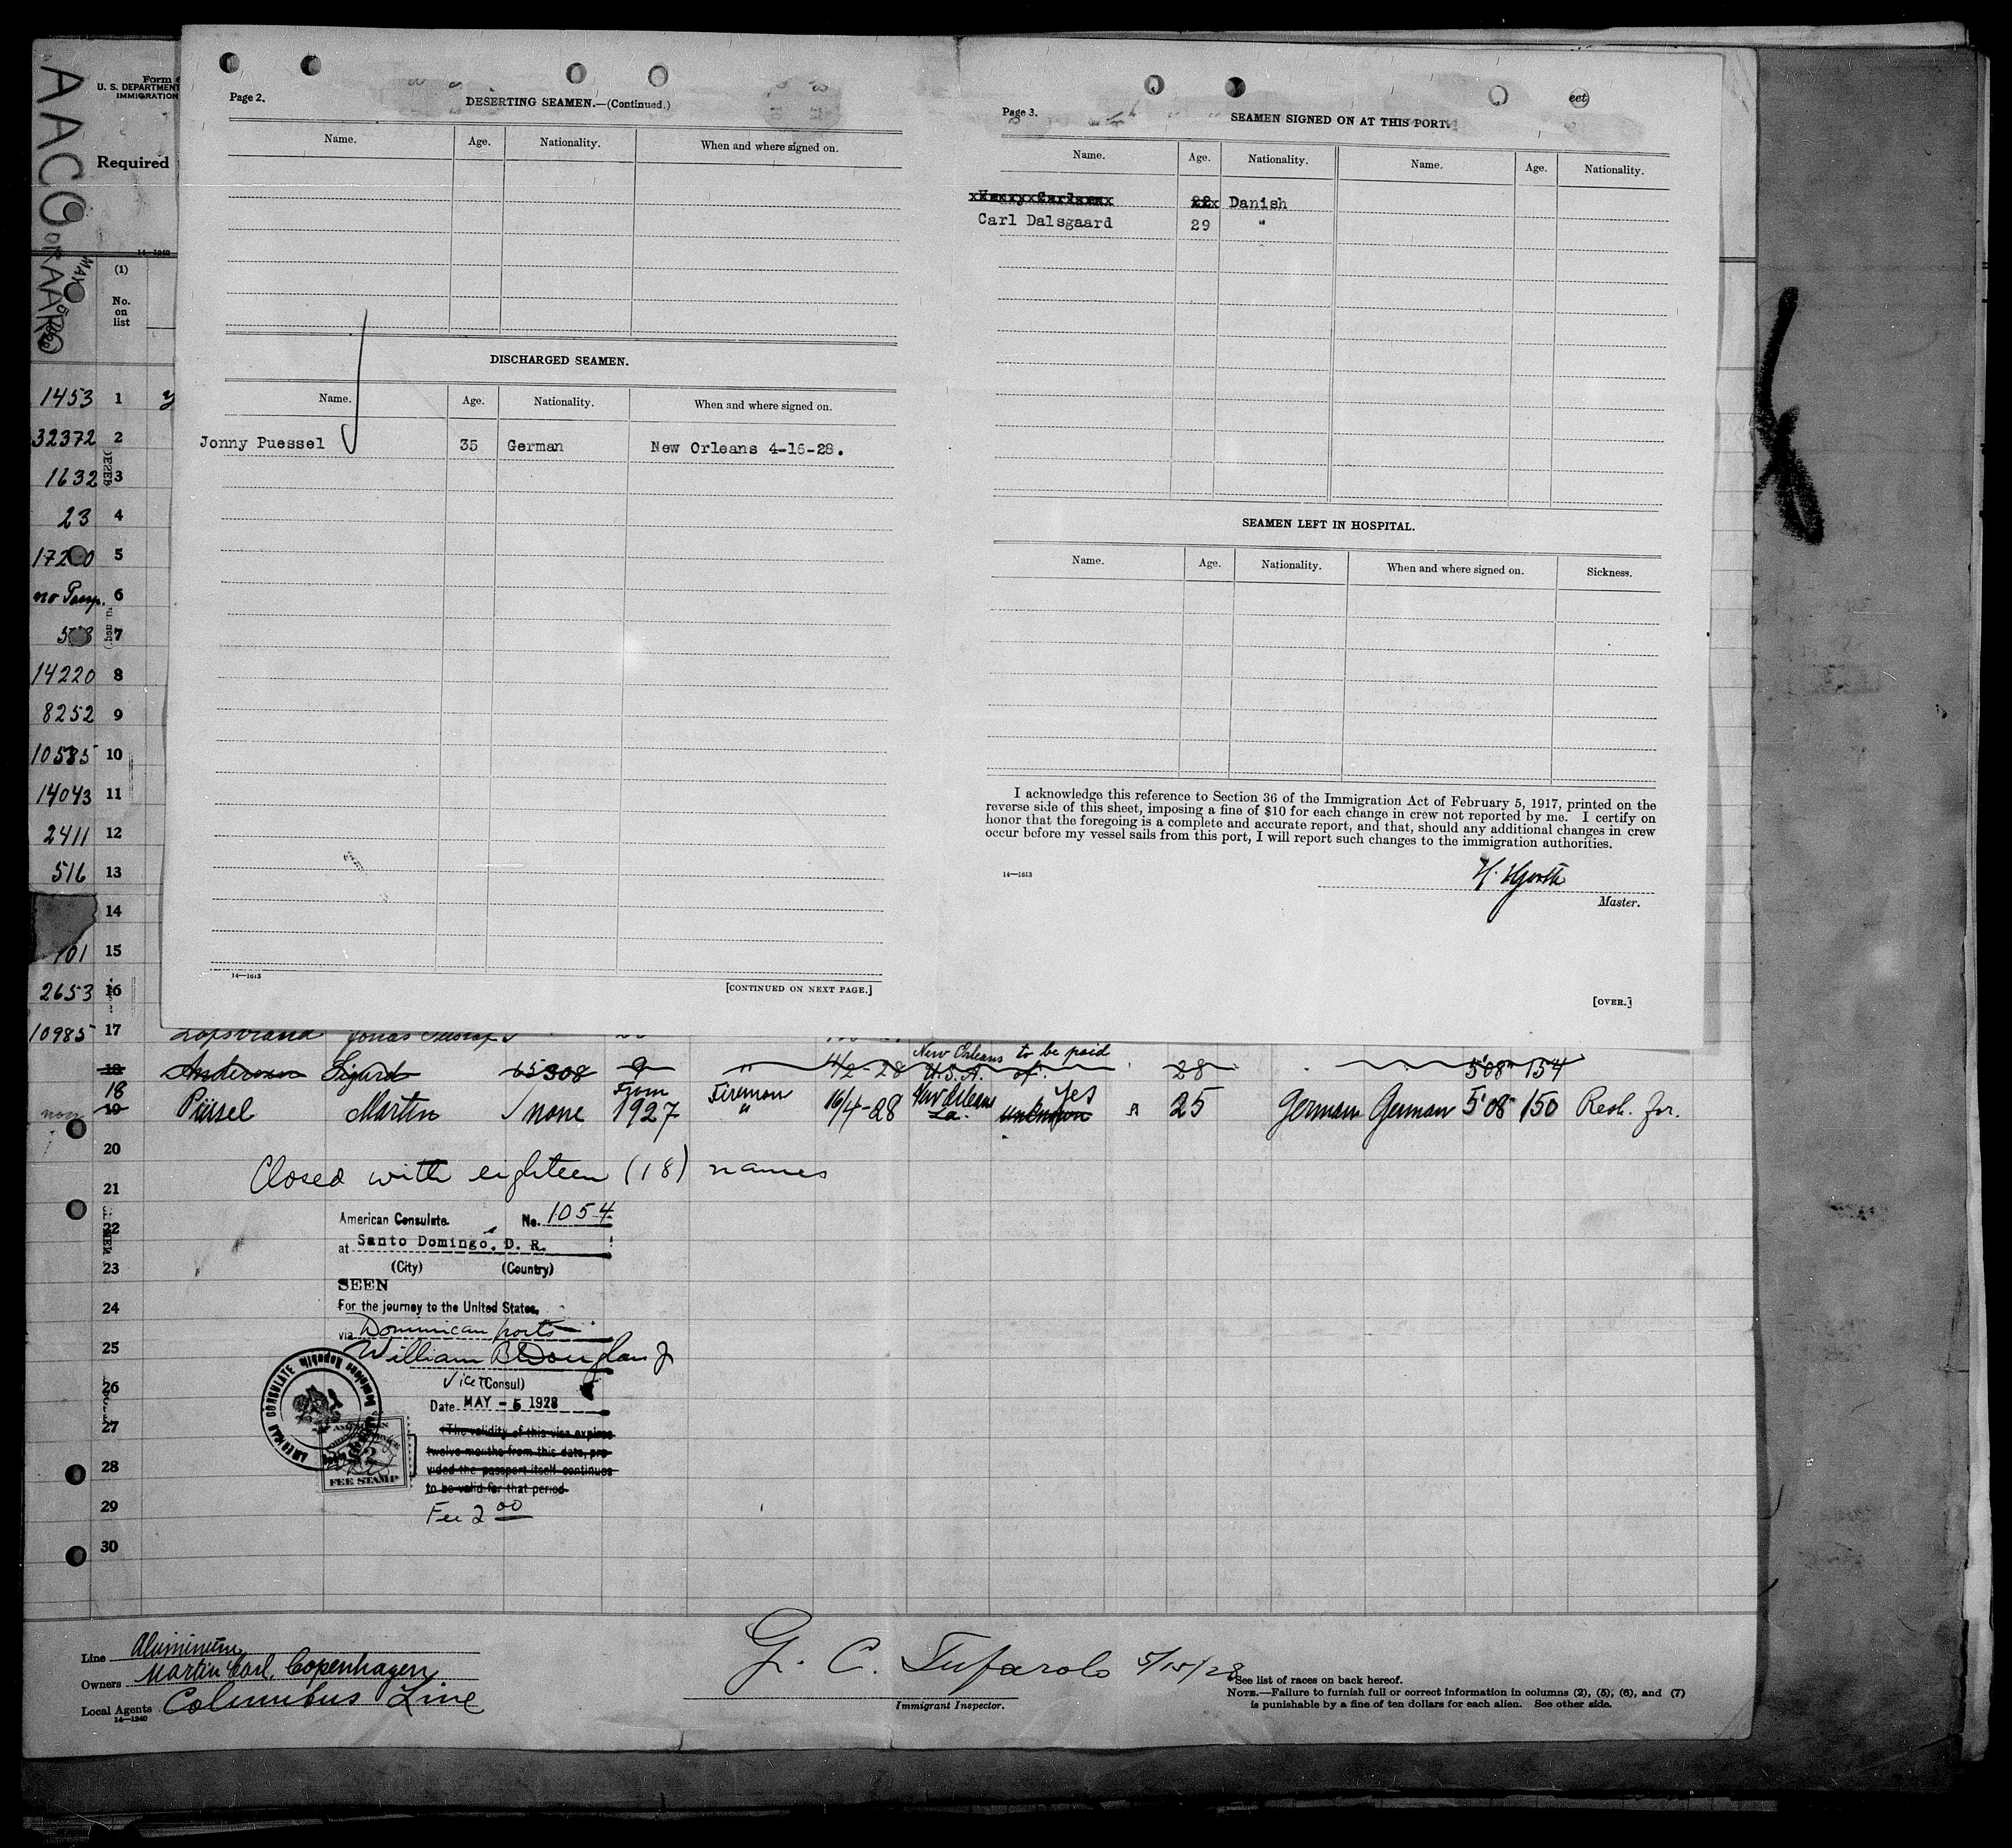 Form
U. S. DEPARTMENT
IMMIGRATION
Required
14—1240
(1)
No.
on
list
Page 2.
DESERTING SEAMEN.—(Continued.)
Name. Age. Nationality. When and where signed on.
DISCHARGED SEAMEN.
Name. Age. Nationality. When and where signed on.
Jonny Puessel 35 German New Orleans 4-16-28.
14—1613
[CONTINUED ON NEXT PAGE.]
Page 3.
SEAMEN SIGNED ON AT THIS PORT.
Name. Age. Nationality. Name. Age. Nationality.
22 Danish
Carl Dalsgaard 29 "
SEAMEN LEFT IN HOSPITAL.
Name. Age. Nationality. When and where signed on. Sickness.
I acknowledge this reference to Section 36 of the Immigration Act of February 5, 1917, printed on the
reverse side of this sheet, imposing a fine of $10 for each change in crew not reported by me. I certify on
honor that the foregoing is a complete and accurate report, and that, should any additional changes in crew
occur before my vessel sails from this port, I will report such changes to the immigration authorities.
14—1613
Master.
[OVER.]
1453 1
32372 2
1632 3
23 4
5
6
7
14220 8
8252 9
10585 10
14043 11
2411 12
516 13
14
101 15
2653 16
10985 17
New Orleans to be paid
18 Anderson Sigurd 65308 9 " 4/2-28 U.S.A. of. 28 5'08" 154
From Firemon Yes
18 19 Püssel Martin none 1927 " 16/4-28 New Orleans La. unknown 25 German German 5'08" 150 Resh. for.
20
Closed with eighteen (18) names
21
American Consulate. No. 1054
22
at Santo Domingo, D. R.
(City) (Country)
23
SEEN
24
For the journey to the United States,
via Dominican ports
25
William B Douglas Jr
Vice (Consul)
26
Date MAY - 5 1928
27
(The validity of this visa expires
twelve months from this date, pro-
28
vided the passport itself continues
to be valid for that period
29
Fee 2 00
30
AMERICAN CONSULATE
FEE STAMP
Line Aluminum
Owners Martin Carl, Copenhagen
Local Agents Columbus Line
14—1240
G. C. Tufarolo 5/15/28
Immigrant Inspector.
*See list of races on back hereof.
NOTE.—Failure to furnish full or correct information in columns (2), (5), (6), and (7)
is punishable by a fine of ten dollars for each alien. See other side.